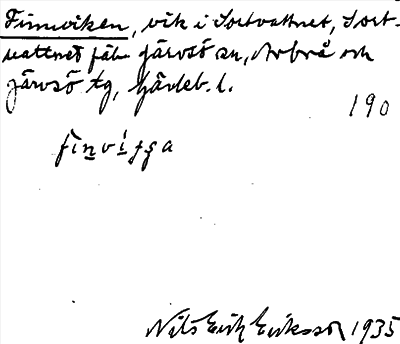 Finnviken, vik i Sortvattnet, Sort-
vattnet fäb. Järvsö sn, Arbrå och
Järvsö tg, Gävleb. l.
190
finviʃɡa
Nils Erik Eriksson 1935